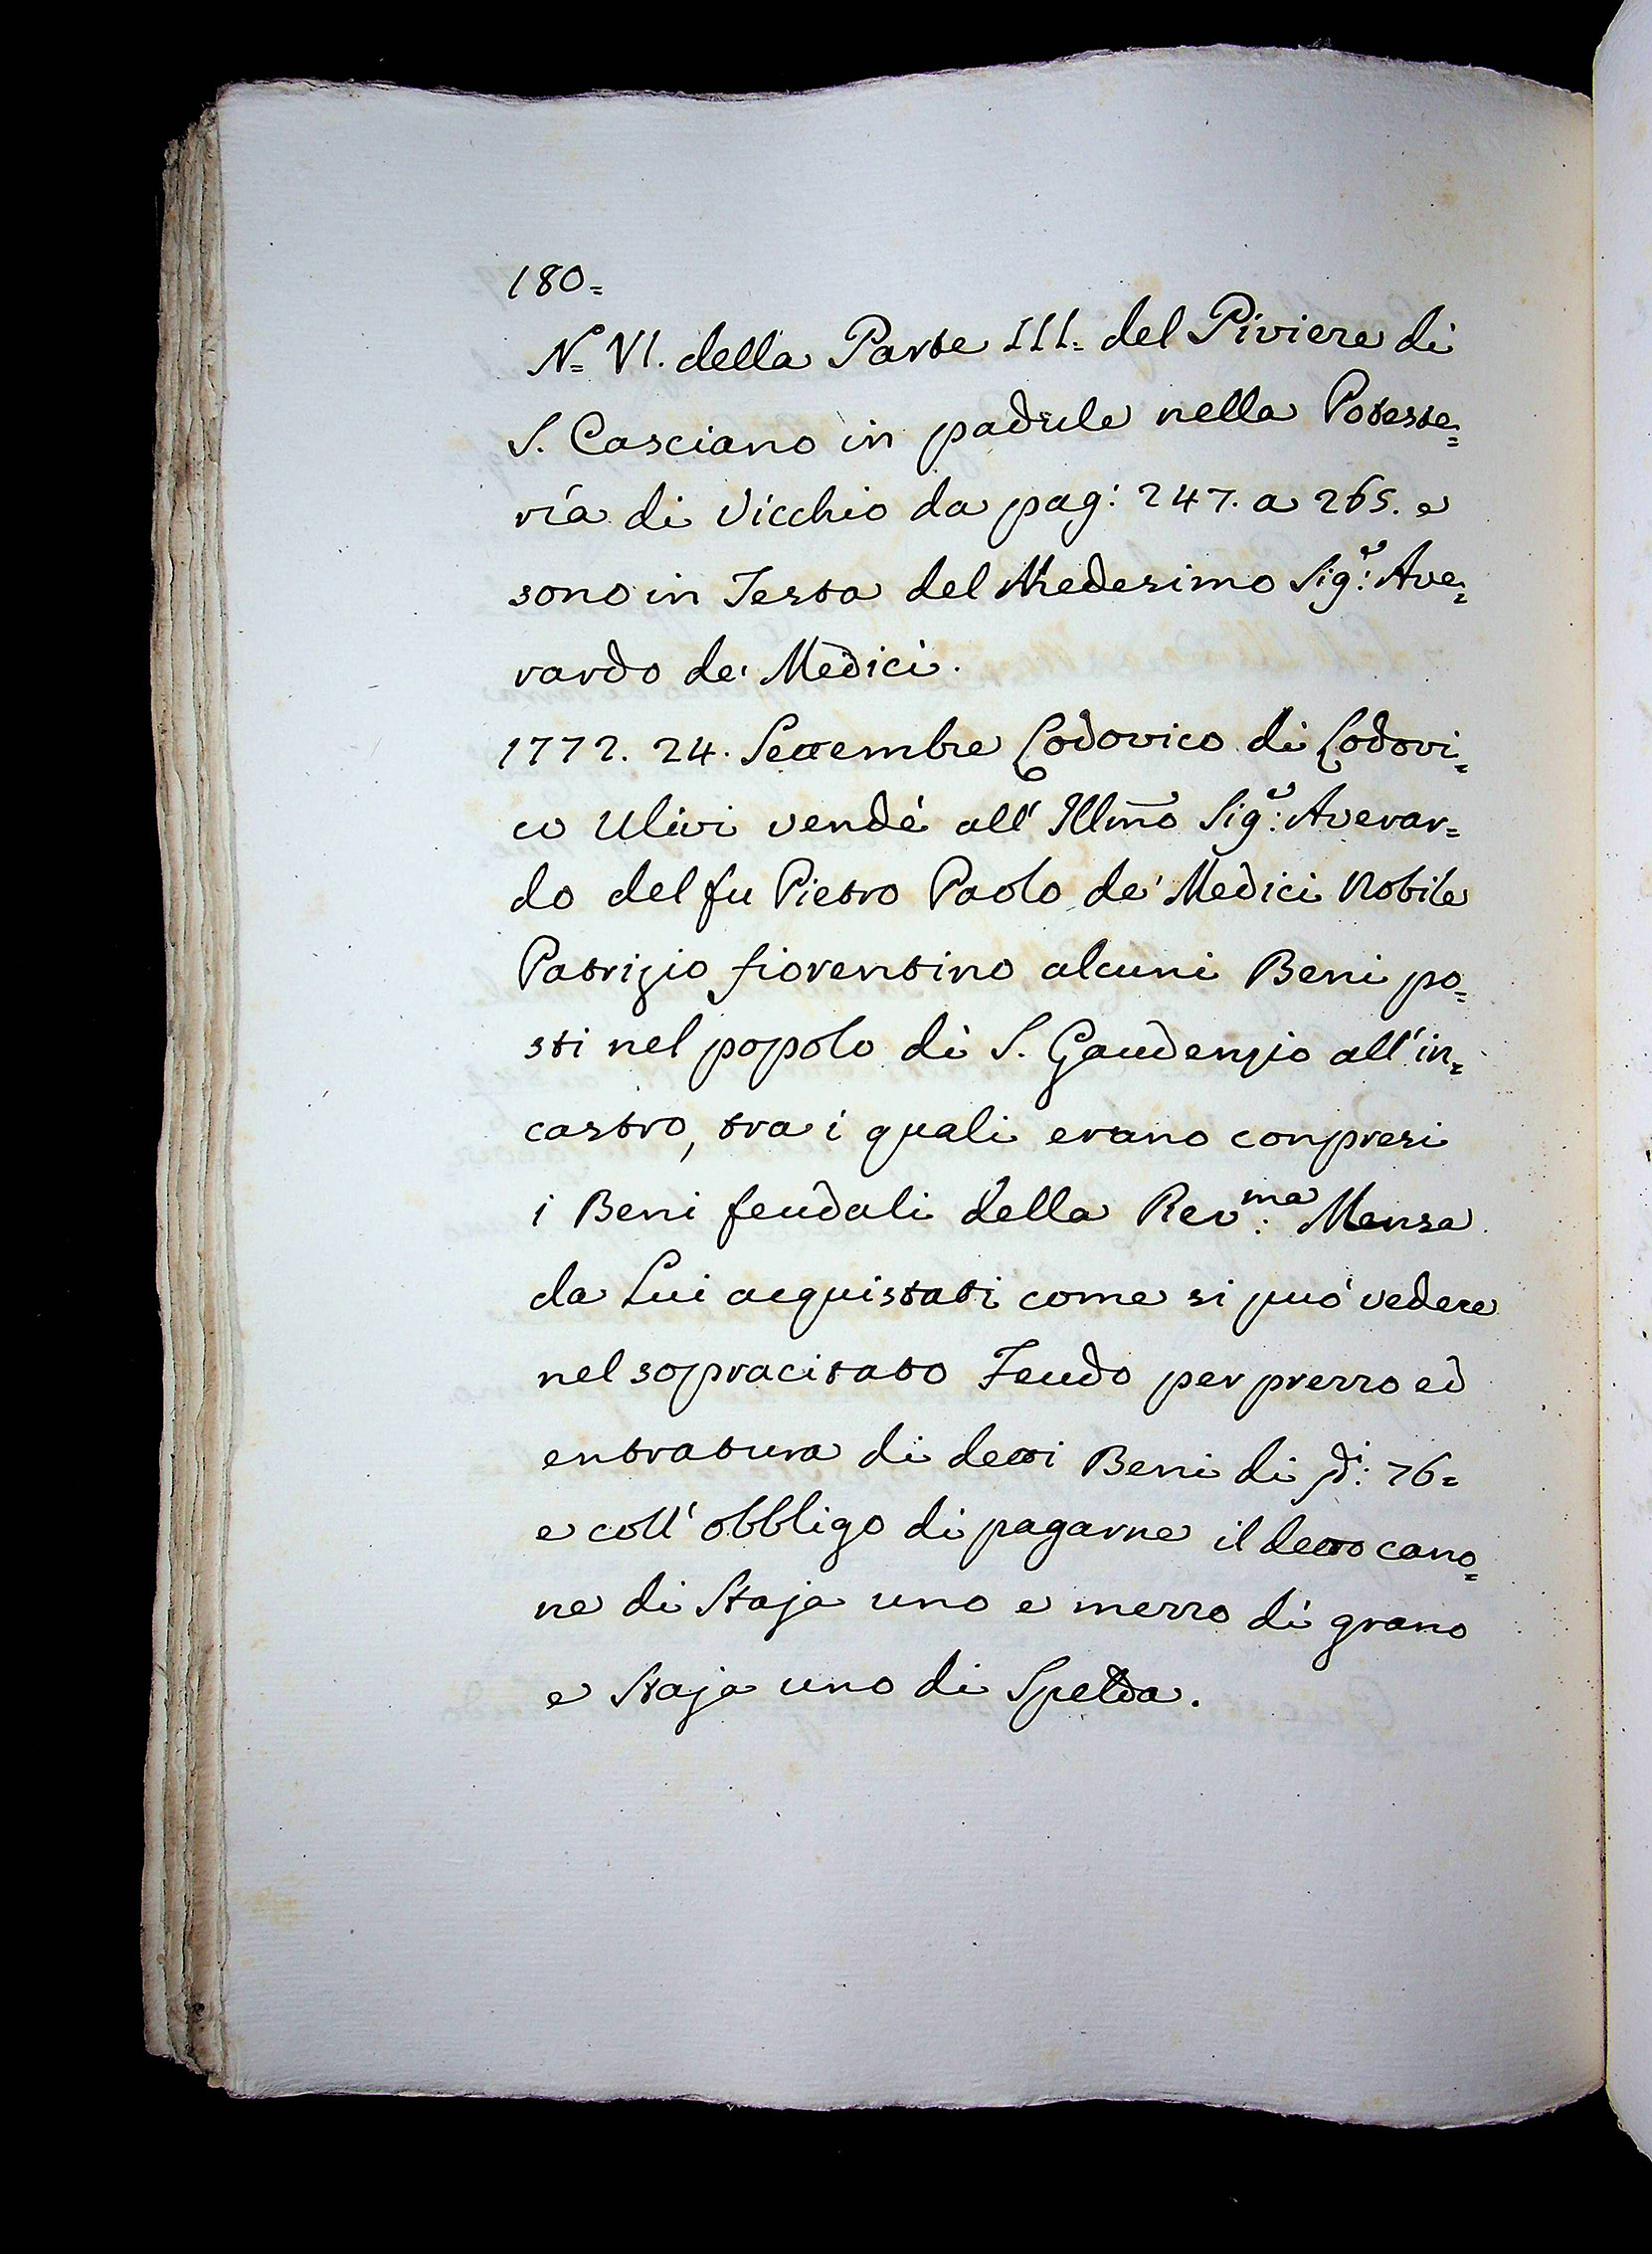 180=
N= VI. della Parte III. del Piviere di
S. Casciano in padule nella Poteste=
ria di Vicchio da pag: 247. a 265. e
sono in Testa del Medesimo Sig:e Ave=
rardo de' Medici.
1772. 24. Settembre Lodovico di Lodovi=
co Ulivi vendé all' Illmo Sig:e Averar=
do del fu Pietro Paolo de' Medici Nobile
Patrizio fiorentino alcuni Beni po=
sti nel popolo di S. Gaudenzio all' in=
castro, tra i quali erano conpresi
i Beni feudali della Rev:ma Mensa
da Lui acquistati come si può vedere
nel sopracitato Feudo per prezzo ed
entratura di detti Beni di 76=
e coll' obbligo di pagarne il detto cano=
ne di Staja uno e mezzo di grano
e Staja uno di Spelda.